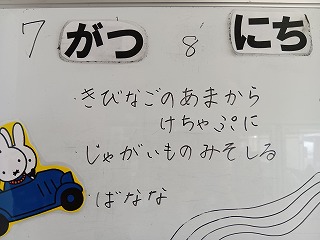 7 がつ 8 にち
・きびなごのあまから
けちゃぷに
・じゃがいものみそしる
・ばなな